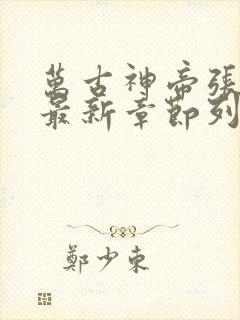 萬古神帝張
最新章節列
鄭少東